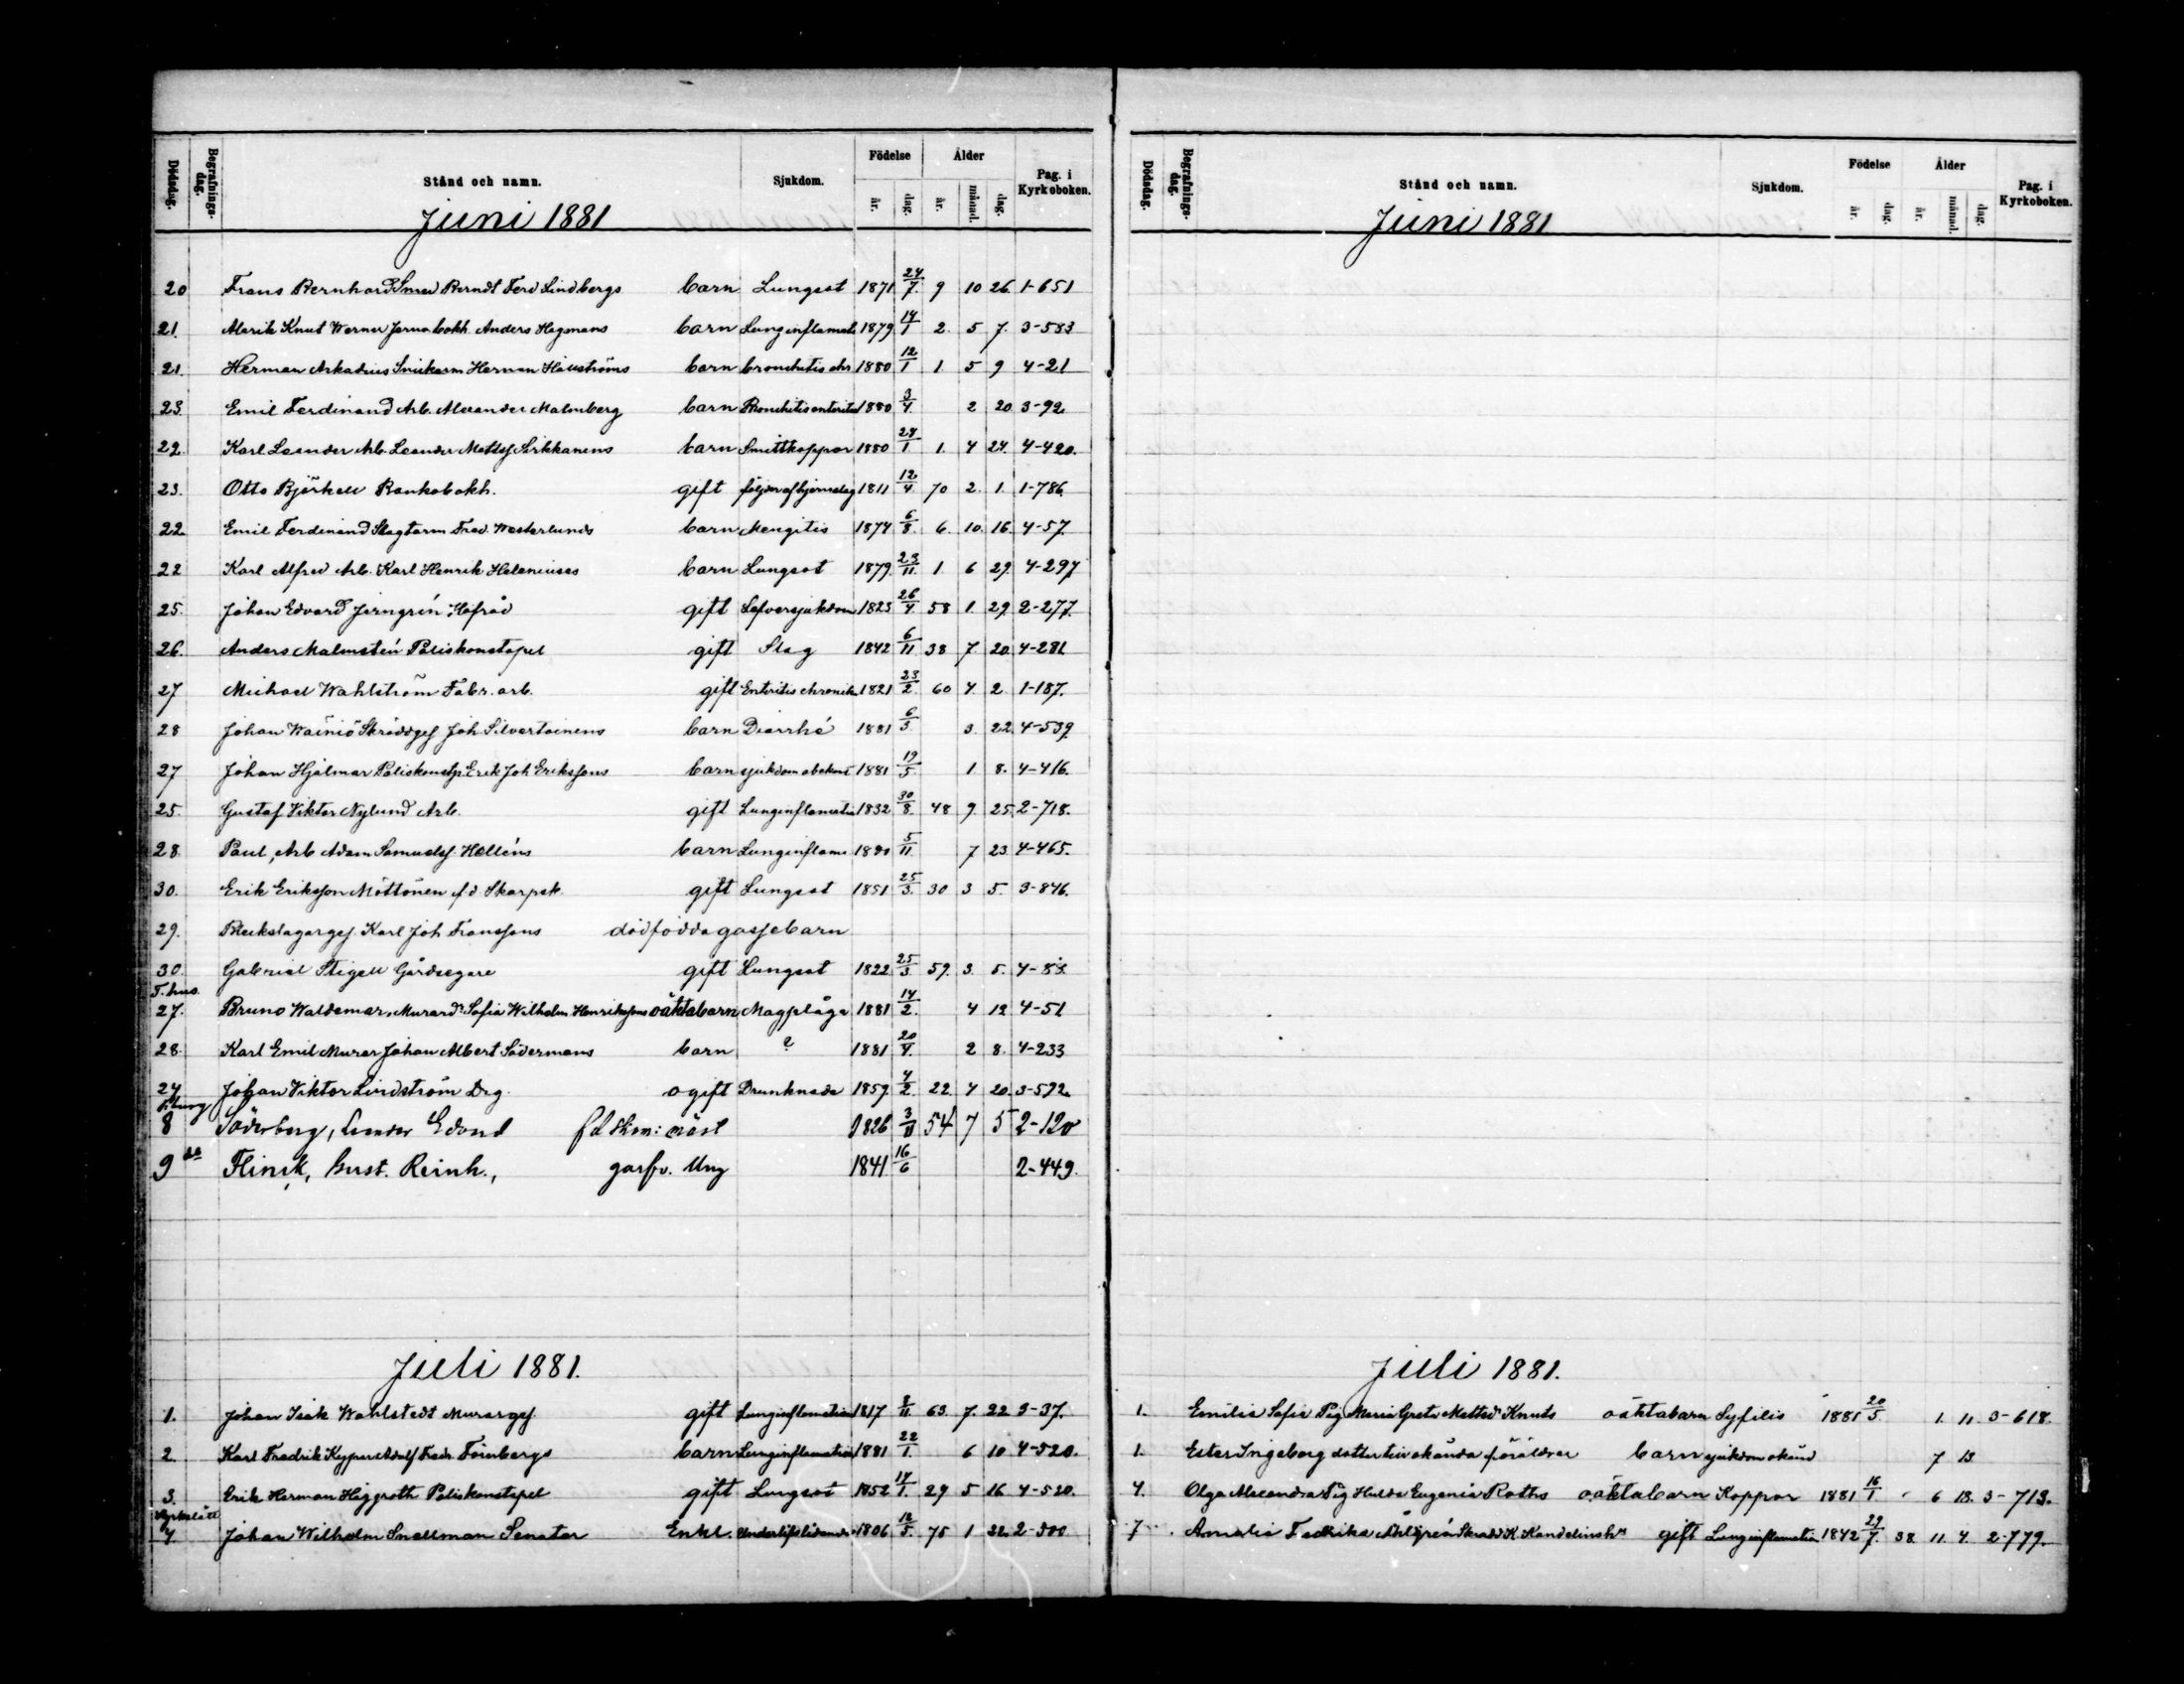 Dödsdag. Begrafnings-dag. Stånd och namn. Sjukdom. Födelse år. dag. Ålder år. månad. dag. Pag. i Kyrkoboken.
Juni 1881
20 Frans Bernhard Smed Berndt Ferd Lindbergs barn Lungsot 1871 24/7. 9 10 26 1-651
21. Alarik Knut Werner Jernvbokh. Anders Hagmans barn Lunginflamat. 1879 14/1 2. 5 7. 3-583
21. Herman Arkadius Snickarm Herman barn bronchitis chr 1880 12/1 1. 5 9 4-21
23. Emil Ferdinand Arb. Alexander Malmberg barn Bronchitis enterit 1880 3/4. 2 20 3-92
22. Karl Leander Arb. Leander Mattsf Sirkkanens barn Smittkoppor 1880 28/1 1. 4 24. 4-420.
23. Otto Björkell Bankobokh. gift följder af hjernslag 1811 12/4. 70 2. 1. 1-786
22. Emil Ferdinand Slagtarm Fred. Westerlunds barn Mengitis 1874 6/8. 6. 10. 16. 4-57.
22 Karl Alfred Arb. Karl Henrik Heleniuses barn Lungsot 1879. 23/11. 1. 6 29. 4-297
25. Johan Edvard Jerngrén Hofråd gift Lefversjukdom 1823 26/4. 58 1. 29. 2-277.
26. Anders Malmstén Poliskonstapel gift Slag 1842 6/11 38 7 20 4-281.
27 Michael Wahlström Fabr. arb. gift Enteritis chronika 1821 23/2. 60 4. 2. 1-187.
28 Johan Wäinö Skräddgef Joh Silvertoinens barn Diarrhé 1881 6/3. 3. 22. 4-539.
27 Johan Hjalmar Poliskonstp. Erik Joh Erikssons barn sjukdom obekant 1881 19/5. 1 8. 4-416.
25. Gustaf Viktor Nylund Arb. gift Lunginflamatio 1832 30/8. 48 9. 25. 2-718.
28. Paul, Arb Adam Samuelsf Helléns barn Lunginflam. 1880 5/11. 7 23. 4-465.
30. Erik Eriksson Möttönen f.d Skarpsk. gift Lungsot 1851 25/3. 30 3 5. 3-846.
29. Bleckslagargef. Karl Joh Franssons dödfödda gossebarn
30. Gabriel Stigell Gårdsegare gift Lungsot 1822 25/3. 59. 3. 5. 4-83.
F. hus.
27. Bruno Waldemar, Murard. Sofia Wilholm. Henrikssons oäktabarn Magplåga 1881 14/2. 4 12 4-51
28. Karl Emil Murar Johan Albert Södermans barn ? 1881 20/4. 2 8. 4-233
24 Johan Viktor Lindström Drg. ogift Drunknade 1859. 4/2. 22. 4 20. 3-592.
8 Söderberg, Leander Edvard f d 1826 3/11 54 7 5 2-120
9 Flinck, Gust. Reinh., garfv. Ung 1841 16/6 2-449.
Juli 1881.
1. Johan Isak Wahlstedt Murargef. gift Lunginflamation 1817 8/11. 63. 7. 22 3-37.
2. Karl Fredrik Kypper Adolf Fredr. Feinbergs barn Lunginflamation 1881 22/1. 6 10 4-520.
3. Erik Herman Häggroth Poliskonstapel gift Lungsot 1852 17/1. 29 5 16 4-520.
Kyrkslätt
4. Johan Wilhelm Snellman Senator Enkl. Underlifslidande 1806 12/5. 75 1 22. 2-500
Dödsdag. Begrafnings-dag. Stånd och namn. Sjukdom. Födelse år. dag. Ålder år. månad. dag. Pag. i Kyrkoboken.
Juni 1881
Juli 1881.
1. Emilia Sofia Pig Maria Greta Mattsd. Knuts oäktabarn Syfilis 1881 20/5. 1. 11. 3-618.
1. Ester Ingeborg dotter till okända föräldrar barn sjukdom okänd 7 13
4. Olga Alexandra Pig Hulda Eugenia Roths oäktabarn Koppor 1881 16/1. 6 18. 3-713.
7. Amalia Fredrika Ahlgrén Skradd K. Kandelins hu gift Lunginflamation 1842 29/7. 38. 11. 4. 2-779.